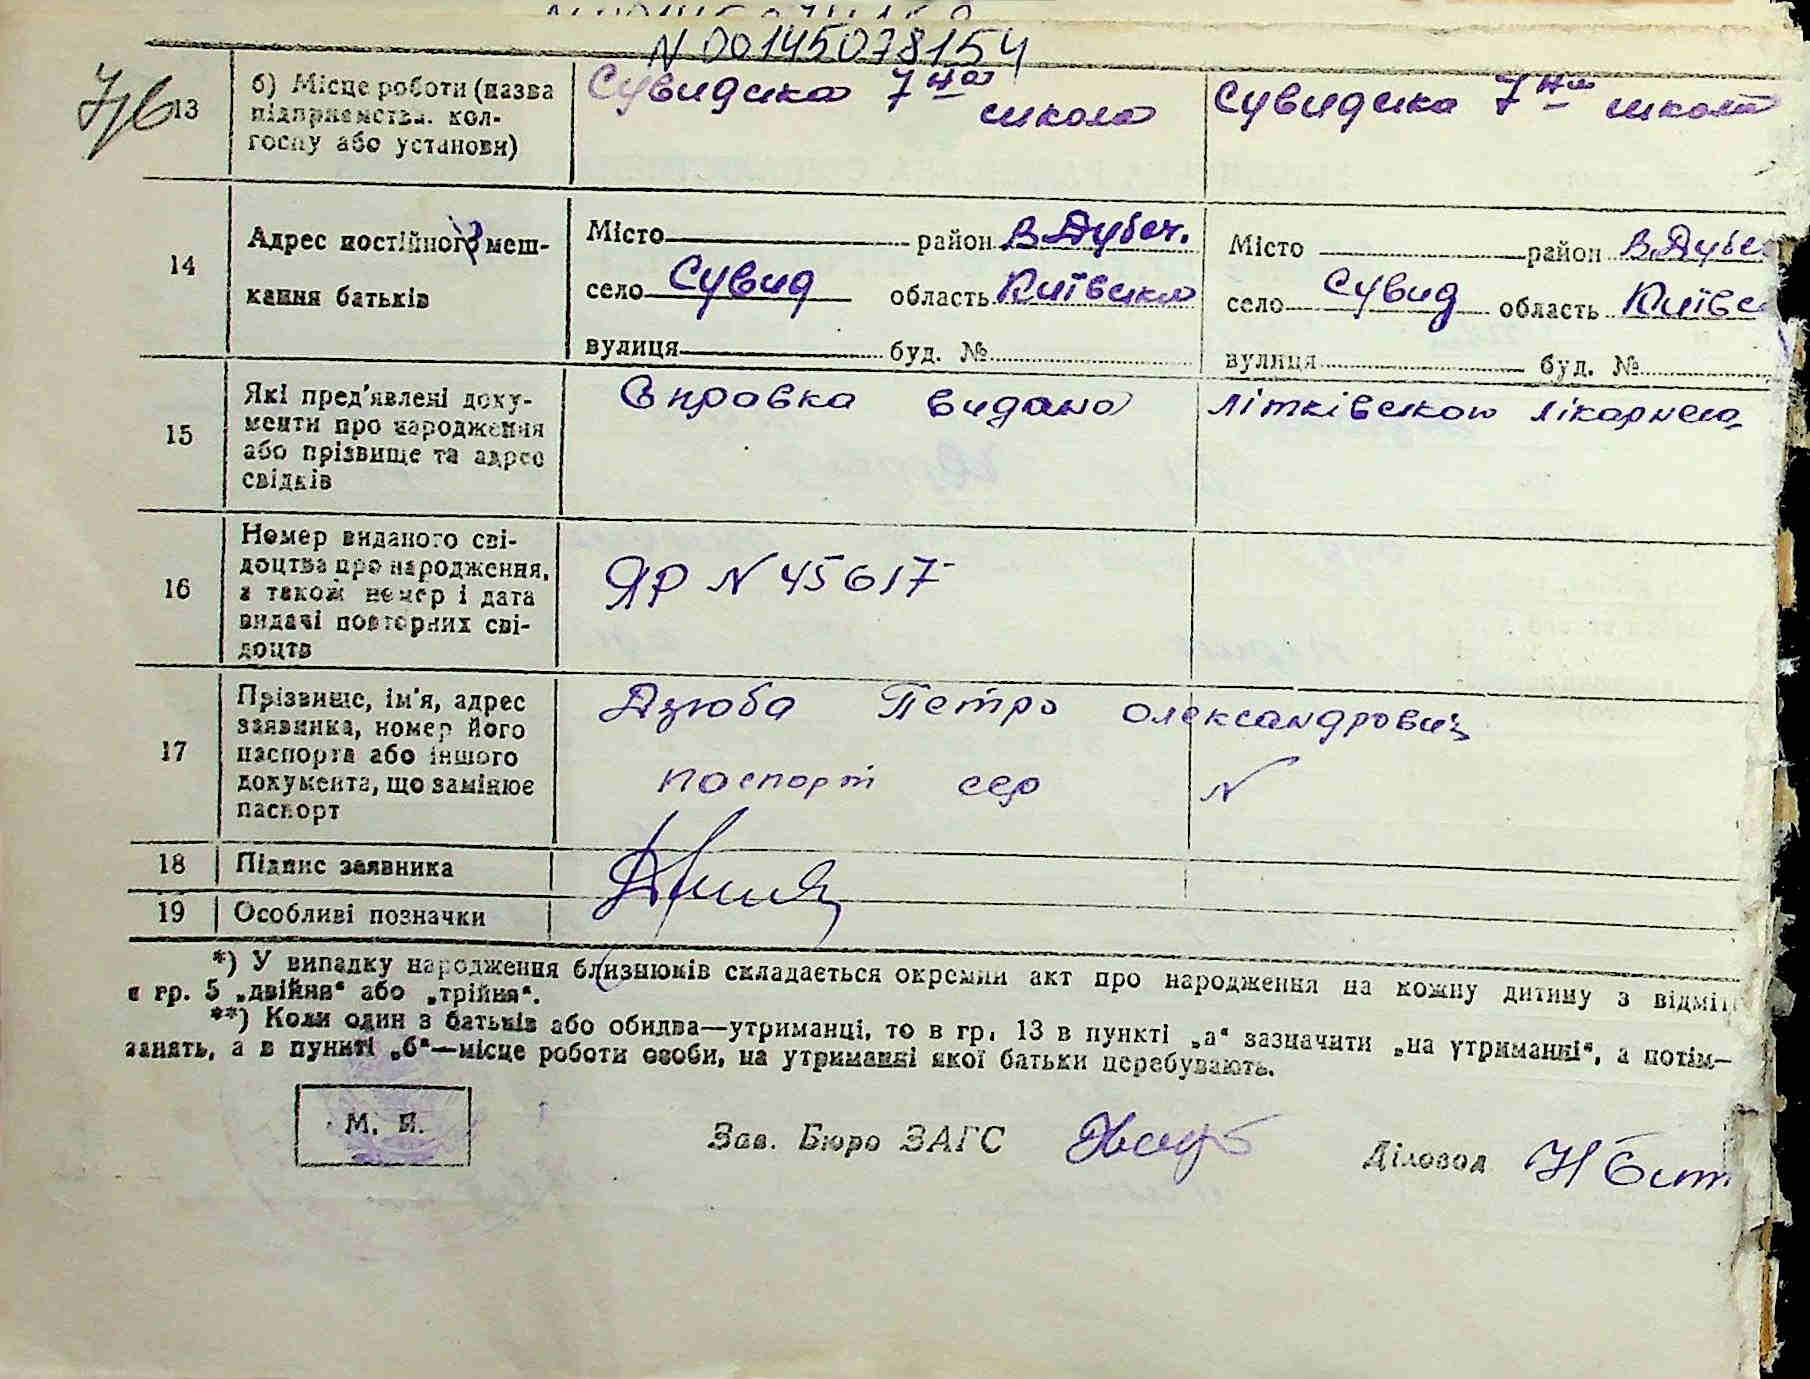 N 00145078154
13 б) Місце роботи (назва підприємства, колгоспу або установи) Сувидська 7на школа Сувидська 7на школа
14 Адрес постійного мешкання батьків
Місто район В Дубеч. Місто район В Дубе
село Сувид область Київська село Сувид область Київс
вулиця буд. № вулиця буд. №
15 Які пред'явлені документи про народження або прізвище та адрес свідків Справка видана Літківською лікарнею
16 Номер виданого свідоцтва про народження, а також номер і дата видачі повторних свідоцтв ЯР N 45617
17 Прізвище, ім'я, адрес заявника, номер його паспорта або іншого документа, що замінює паспорт Дзюба Петро Олександрович
паспорт сер N
18 Підпис заявника
19 Особливі позначки
*) У випадку народження близнюків складається окремий акт про народження на кожну дитину з відміт
в гр. 5 „двійня“ або „трійня“.
**) Коли один з батьків або обидва—утриманці, то в гр. 13 в пункті „а“ зазначити „на утриманні“, а потім—
занять, а в пункті „б“—місце роботи особи, на утриманні якої батьки перебувають.
М. П. Зав. Бюро ЗАГС Діловод